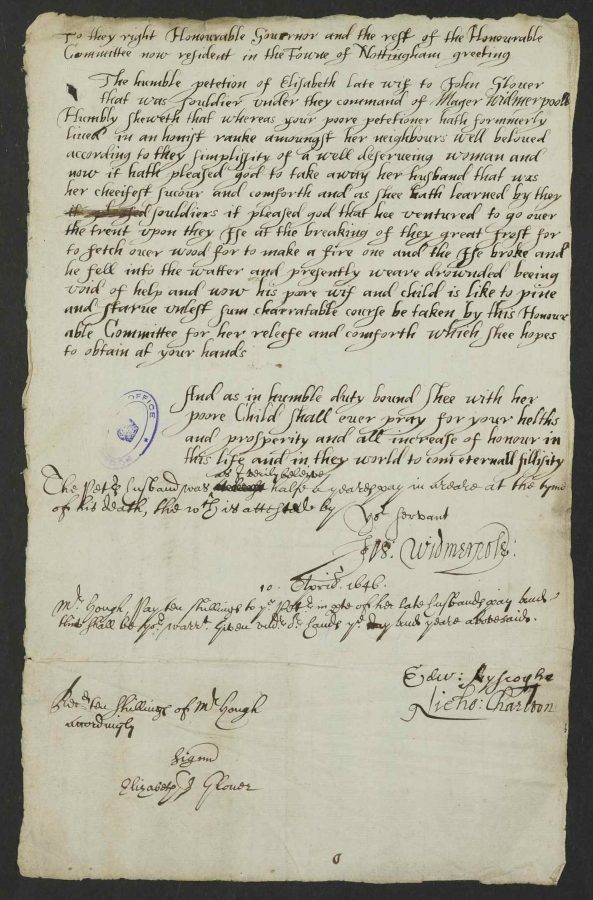 To they right Honourable Governor and the rest of the Honourable
Committee now resident in the Towne of Nottingham greeting
The humble petetion of Elisabeth late wif to John Glover
that was souldier under they command of Mager Widmerpoole
Humbly sheweth that whereas your poore petetioner hath formmerly
lived in an honist ranke amoungst her neighbours well beloved
according to they simplissity of a well deserveing woman and
now it hath pleased god to take away her husband that was
her cheifest sucour and comforth and as shee hath learned by they
souldiers it pleased god that hee ventured to go over
the trent upon they Ise at the breaking of they great frost for
to fetch over wood for to make a fire one and the Ise broke and
he fell into the watter and presently weare drownded beeing
void of help and now his pore wif and child is like to pine
and starve unlest sum charratable course be taken by this Honour
able Committee for her releefe and comforth which shee hopes
to obtain at your hands
And as in humble duty bound shee with her
poore Child shall ever pray for your helths
and prosperity and all increase of honour in
this life and in they world to com eternall fillisity
as I verily beleive
The Petrs husband was halfe a yeares pay in areare at the tyme
of his death, the wch is attested by
Yor servant
Jos: Widmerpole:
10. Aprill. 1646.
Mr. Hough, Pay ten shillings to ye Petr. in pte of her late husbands pay and
this shall be yor. warrt. Given undr. or. hands ye day and yeare abovesaid.
Edw: Ayscoghe
Nicho: Charlton
Recd. ten shillings of Mr Hough
accordingly
Signed
Elizabeth Glover
OFFICE